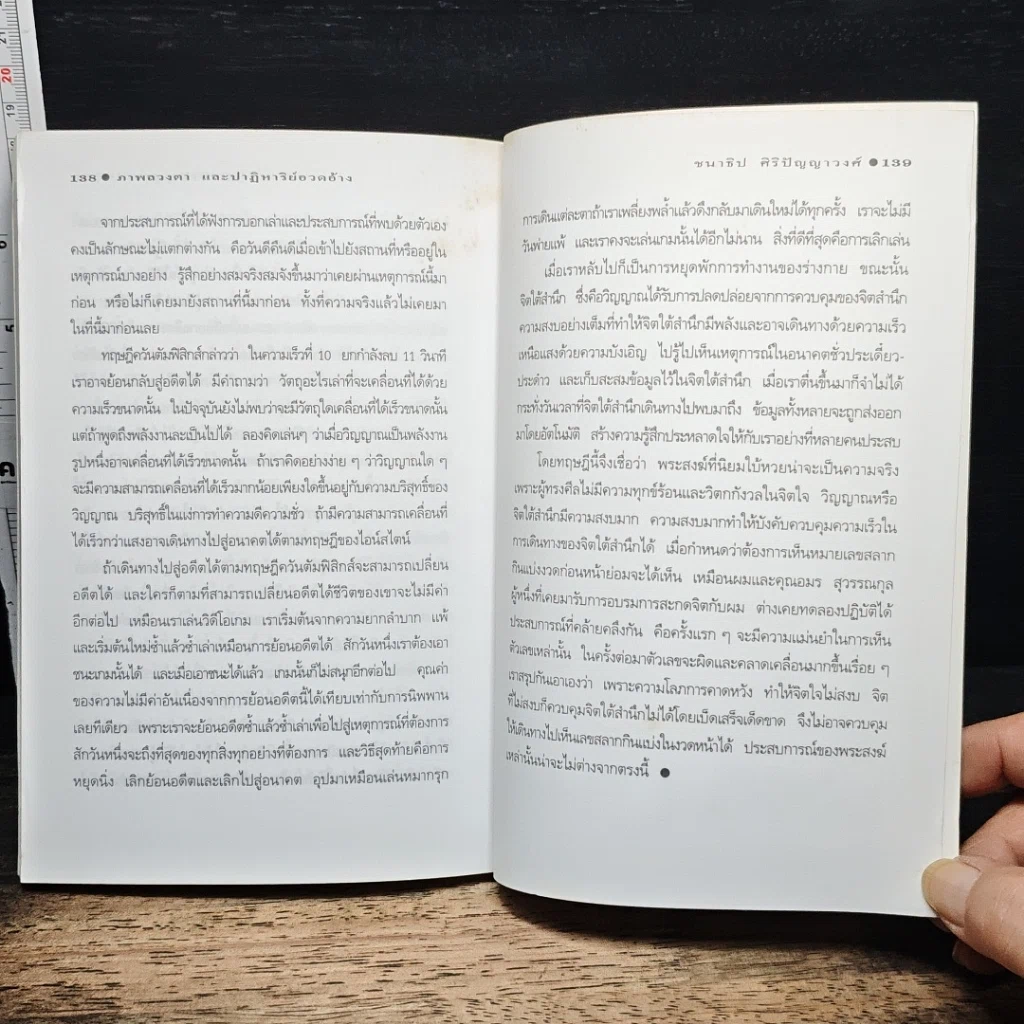 138 ● ภาพลวงตา และปาฏิหาริย์อวดอ้าง
จากประสบการณ์ที่ได้ฟังการบอกเล่าและประสบการณ์ที่พบด้วยตัวเอง
คงเป็นลักษณะไม่แตกต่างกัน คือวันดีคืนดีเมื่อเข้าไปยังสถานที่หรืออยู่ใน
เหตุการณ์บางอย่าง รู้สึกอย่างสมจริงสมจังขึ้นมาว่าเคยผ่านเหตุการณ์นี้มา
ก่อน หรือไม่ก็เคยมายังสถานที่นี้มาก่อน ทั้งที่ความจริงแล้วไม่เคยมา
ในที่นี้มาก่อนเลย
ทฤษฎีควันตัมฟิสิกส์กล่าวว่า ในความเร็วที่ 10 ยกกำลังลบ 11 วินาที
เราอาจย้อนกลับสู่อดีตได้ มีคำถามว่า วัตถุอะไรเล่าที่จะเคลื่อนที่ได้ด้วย
ความเร็วขนาดนั้น ในปัจจุบันยังไม่พบว่าจะมีวัตถุใดเคลื่อนที่ได้เร็วขนาดนั้น
แต่ถ้าพูดถึงพลังงานละเป็นไปได้ ลองคิดเล่นๆ ว่าเมื่อวิญญาณเป็นพลังงาน
รูปหนึ่งอาจเคลื่อนที่ได้เร็วขนาดนั้น ถ้าเราคิดอย่างง่าย ๆ ว่าวิญญาณใด ๆ
จะมีความสามารถเคลื่อนที่ได้เร็วมากน้อยเพียงใดขึ้นอยู่กับความบริสุทธิ์ของ
วิญญาณ บริสุทธิ์ในแง่การทำความดีความชั่ว ถ้ามีความสามารถเคลื่อนที่
ได้เร็วกว่าแสงอาจเดินทางไปสู่อนาคตได้ตามทฤษฎีของไอน์สไตน์
ถ้าเดินทางไปสู่อดีตได้ตามทฤษฎีควันตัมฟิสิกส์จะสามารถเปลี่ยน
อดีตได้ และใครก็ตามที่สามารถเปลี่ยนอดีตได้ชีวิตของเขาจะไม่มีค่า
อีกต่อไป เหมือนเราเล่นวิดีโอเกม เราเริ่มต้นจากความยากลำบาก แพ้
และเริ่มต้นใหม่ซ้ำแล้วซ้ำเล่าเหมือนการย้อนอดีตได้ สักวันหนึ่งเราต้องเอา
ชนะเกมนั้นได้ และเมื่อเอาชนะได้แล้ว เกมนั้นก็ไม่สนุกอีกต่อไป คุณค่า
ของความไม่มีค่าอันเนื่องจากการย้อนอดีตนี้ได้เทียบเท่ากับการนิพพาน
เลยทีเดียว เพราะเราจะย้อนอดีตซ้ำแล้วซ้ำเล่าเพื่อไปสู่เหตุการณ์ที่ต้องการ
สักวันหนึ่งจะถึงที่สุดของทุกสิ่งทุกอย่างที่ต้องการ และวิธีสุดท้ายคือการ
หยุดนิ่ง เลิกย้อนอดีตและเลิกไปสู่อนาคต อุปมาเหมือนเล่นหมากรุก
ชนาธิป ศิริปัญญาวงศ์ ●139
การเดินแต่ละตาถ้าเราเพลี่ยงพล้ำแล้วดึงกลับมาเดินใหม่ได้ทุกครั้ง เราจะไม่มี
วันพ่ายแพ้ และเราคงจะเล่นเกมนั้นได้อีกไม่นาน สิ่งที่ดีที่สุดคือการเลิกเล่น
เมื่อเราหลับไปก็เป็นการหยุดพักการทำงานของร่างกาย ขณะนั้น
จิตใต้สำนึก ซึ่งคือวิญญาณได้รับการปลดปล่อยจากการควบคุมของจิตสำนึก
ความสงบอย่างเต็มที่ทำให้จิตใต้สำนึกมีพลังและอาจเดินทางด้วยความเร็ว
เหนือแสงด้วยความบังเอิญ ไปรู้ไปเห็นเหตุการณ์ในอนาคตชั่วประเดี๋ยว-
ประด๋าว และเก็บสะสมข้อมูลไว้ในจิตใต้สำนึก เมื่อเราตื่นขึ้นมาก็จำไม่ได้
กระทั่งวันเวลาที่จิตใต้สำนึกเดินทางไปพบมาถึง ข้อมูลทั้งหลายจะถูกส่งออก
มาโดยอัตโนมัติ สร้างความรู้สึกประหลาดใจให้กับเราอย่างที่หลายคนประสบ
โดยทฤษฎีนี้จึงเชื่อว่า พระสงฆ์ที่นิยมใบ้หวยน่าจะเป็นความจริง
เพราะผู้ทรงศีลไม่มีความทุกข์ร้อนและวิตกกังวลในจิตใจ วิญญาณหรือ
จิตใต้สำนึกมีความสงบมาก ความสงบมากทำให้บังคับควบคุมความเร็วใน
การเดินทางของจิตใต้สำนึกได้ เมื่อกำหนดว่าต้องการเห็นหมายเลขสลาก
กินแบ่งงวดก่อนหน้าย่อมจะได้เห็น เหมือนผมและคุณอมร สุวรรณกุล
ผู้หนึ่งที่เคยมารับการอบรมการสะกดจิตกับผม ต่างเคยทดลองปฏิบัติได้
ประสบการณ์ที่คล้ายคลึงกัน คือครั้งแรก ๆ จะมีความแม่นยำในการเห็น
ตัวเลขเหล่านั้น ในครั้งต่อมาตัวเลขจะผิดและคลาดเคลื่อนมากขึ้นเรื่อย ๆ
เราสรุปกันเอาเองว่า เพราะความโลภการคาดหวัง ทำให้จิตใจไม่สงบ จิต
ที่ไม่สงบก็ควบคุมจิตใต้สำนึกไม่ได้โดยเบ็ดเสร็จเด็ดขาด จึงไม่อาจควบคุม
ให้เดินทางไปเห็นเลขสลากกินแบ่งในงวดหน้าได้ ประสบการณ์ของพระสงฆ์
เหล่านั้นน่าจะไม่ต่างจากตรงนี้ ●